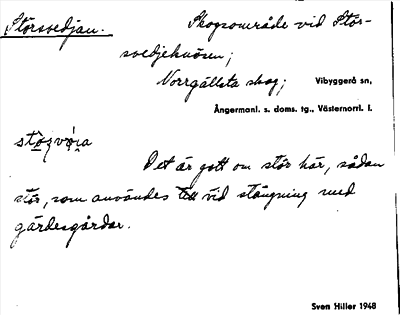 Störsvedjan.
Skogsområde vid Stör-
svedjeknösen;
Norrgällsta skog; Vibyggerå sn,
Ångermanl. s. doms. tg., Västernorrl. l.
Det är gott om stör här, sådan
stör, som användes till vid stängning med
gärdesgårdar.
Sven Hiller 1948